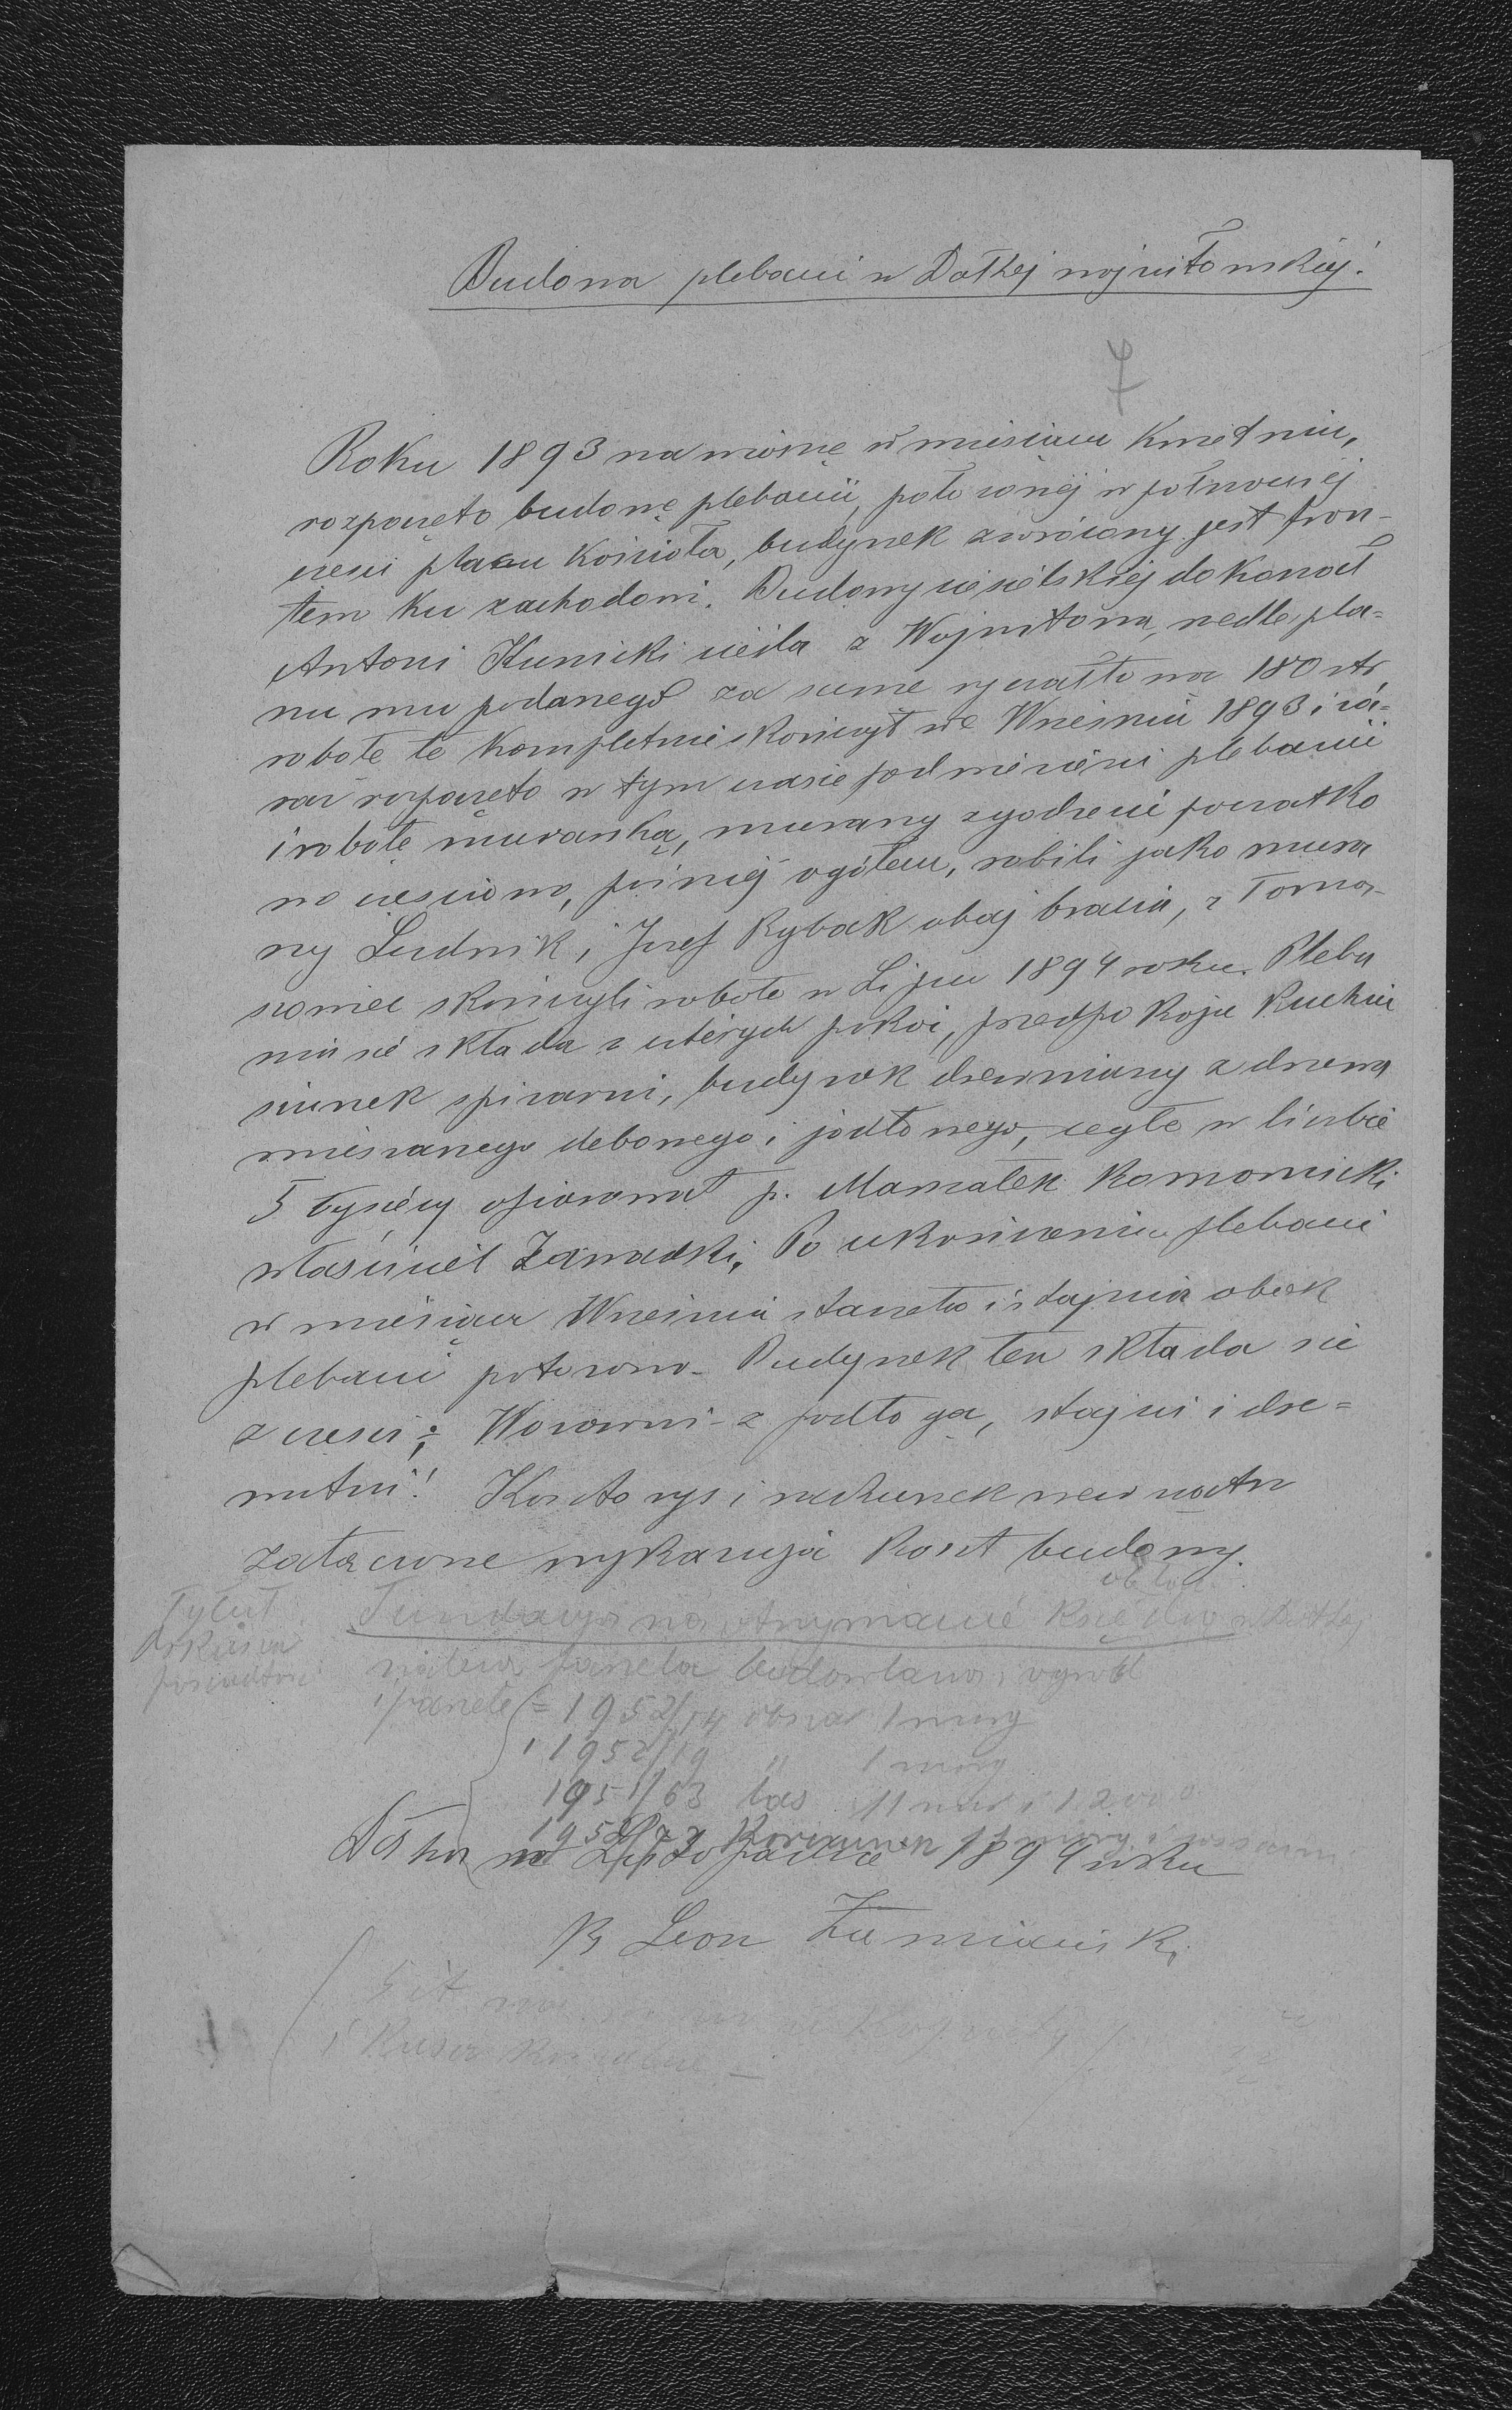 Budowa plebanii w Dołhej wojniłowskiej.
Roku 1893 na wiosnę w miesiącu Kwietniu,
rozpoczęto budowę plebanii, położonej w północnej
cześci placu Kościoła, budynek zwrócony jest fron-
tem ku zachodowi. Budowy ciesielskiej dokonał
Antoni Kunicki cieśla z Wojniłowa, wedle pla-
nu mu podanego za sumę ryczałtową 180 złr,
robotę tę kompletnie skończył we Wrześniu 1893 i za-
raz rozpoczęto w tym czasie podmurowanie plebanii
i robotę murarską, murarzy zgodzeni początko
wo cześciowo, później ogółem, robili jako mura
rzy Ludwik i Józef Rybak obaj bracia, z Toma-
szowiec skończyli robotę w Lipcu 1894 roku. Pleba
nia się składa z czterech pokoi, przedpokoju kuchni
sionek spiżarni, budynek drewniany z drzewa
mieszanego dębowego i jodłowego, cegłę w liczbie
5 tysięcy ofiarował p. Marszałek Komornicki
właściciel Zawadki. Po ukończeniu plebanii
w miesiącu Wrześniu stanęła i stajnia obok
plebanii położona. Budynek ten składa się
z cześci: Wozowni z podłogą, stajni i dre-
wutni! Kosztorys i rachunek wewnątrz
załączone wykazują koszt budowy.
Tytuł
Arkusza
posiadłości
Fundacya na utrzymanie Księdza w Dołhej
parcela budowlana i ogród
i parcele = 1952/14 obszar 1 morg
1952/19 " 1 morg
1951/63 las 11 mor i 1200
Dołha 1894 roku
Ks Leon Ziemiański